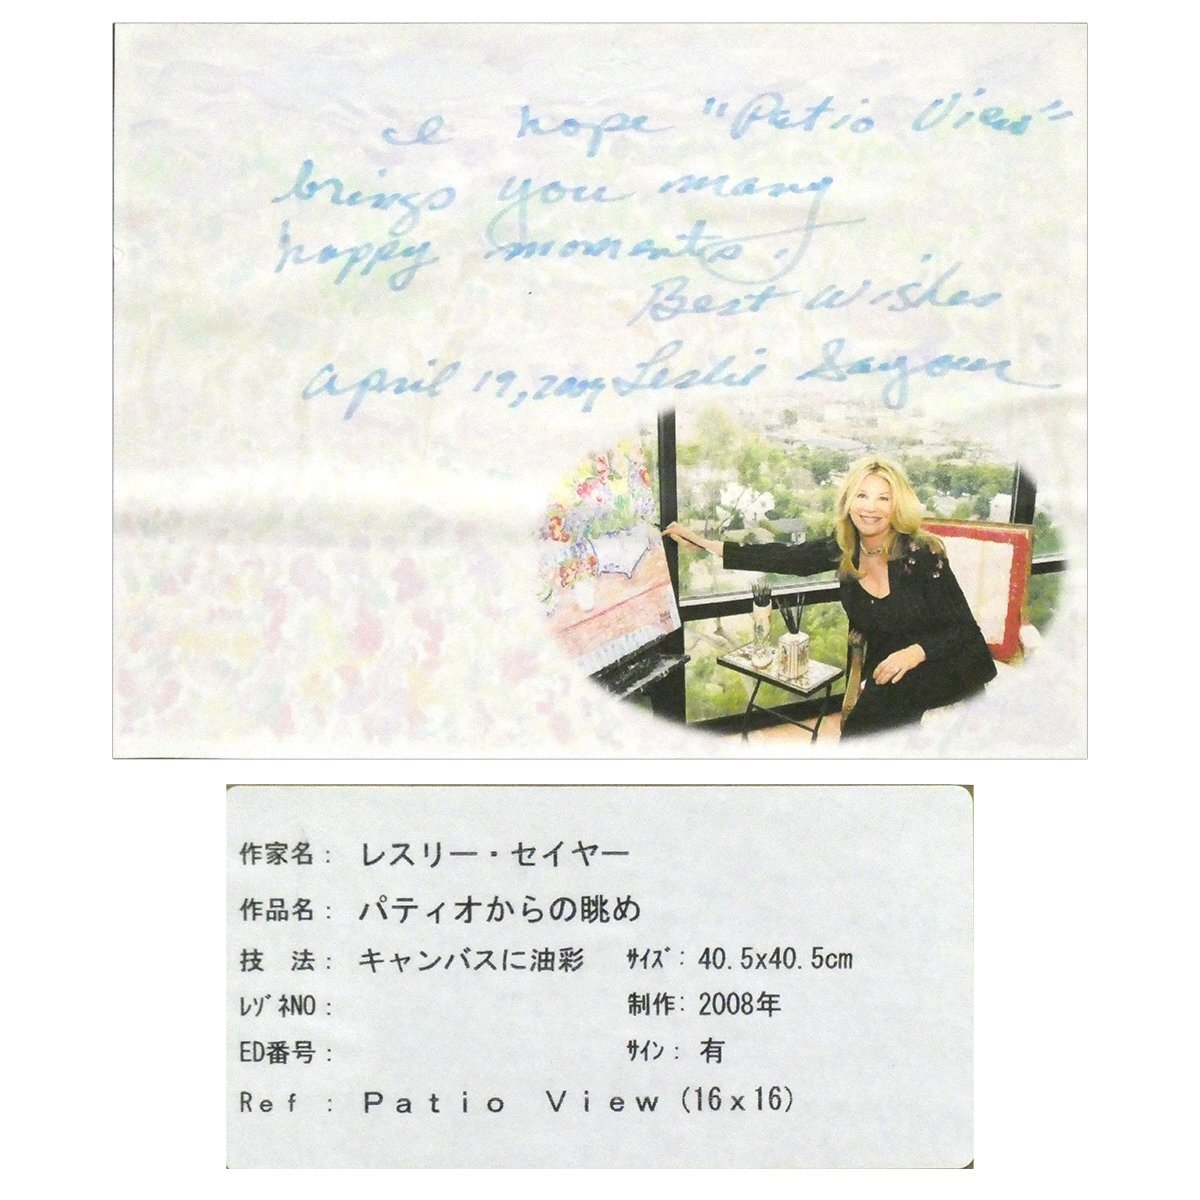 I hope "Patio View"
brings you many
happy moments.
Best Wishes
April 19, 2009 Leslie Sayour
作家名： レスリー・セイヤー
作品名： パティオからの眺め
技　法： キャンバスに油彩　ｻｲｽﾞ： 40.5x40.5cm
ﾚｿﾞﾈNO：　制作： 2008年
ED番号：　ｻｲﾝ： 有
Ref： Patio View (16x16)